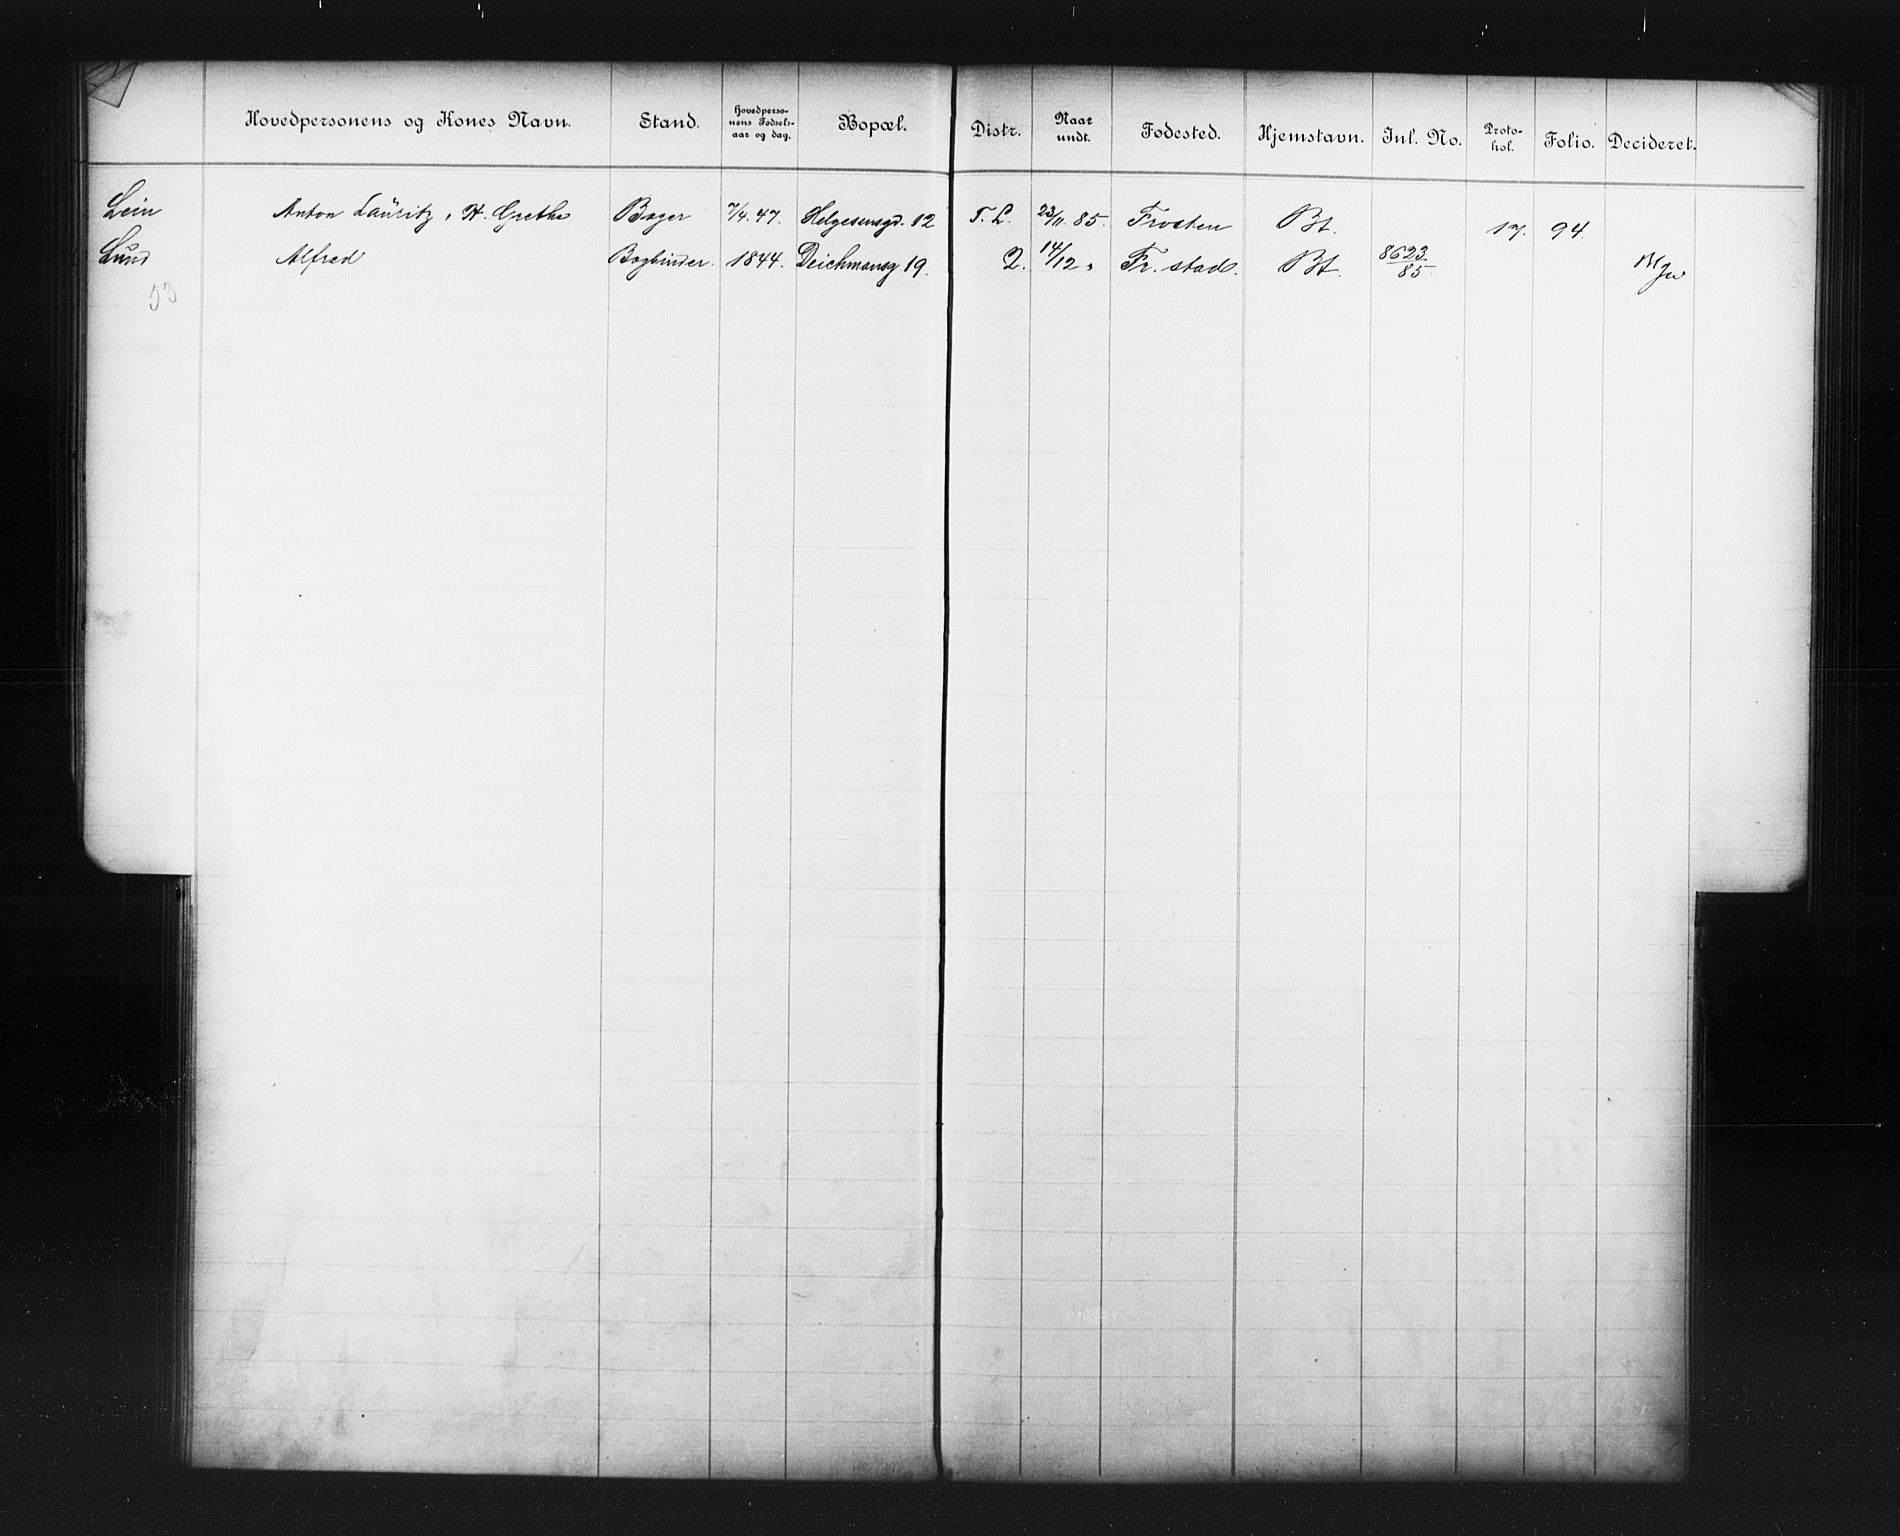 Hovedpersonens og Kones Navn. Stand. Hovedpersonens Fødselsaar og dag. Bopæl. Distr. Naar undt. Fødested. Hjemstavn. Jnl. No. Protokol. Folio. Decideret.
Lein Anton Lauritz, H. Grethe Bager 7/4. 47. Helgesensgd. 12 T. L. 23/11. 85. Frosten Bt. 17. 94
Lund Alfred Bogbinder. 1844. Deichmansg 19. 2. 14/12 " Fr. stad. Bt. 8623/85.
53